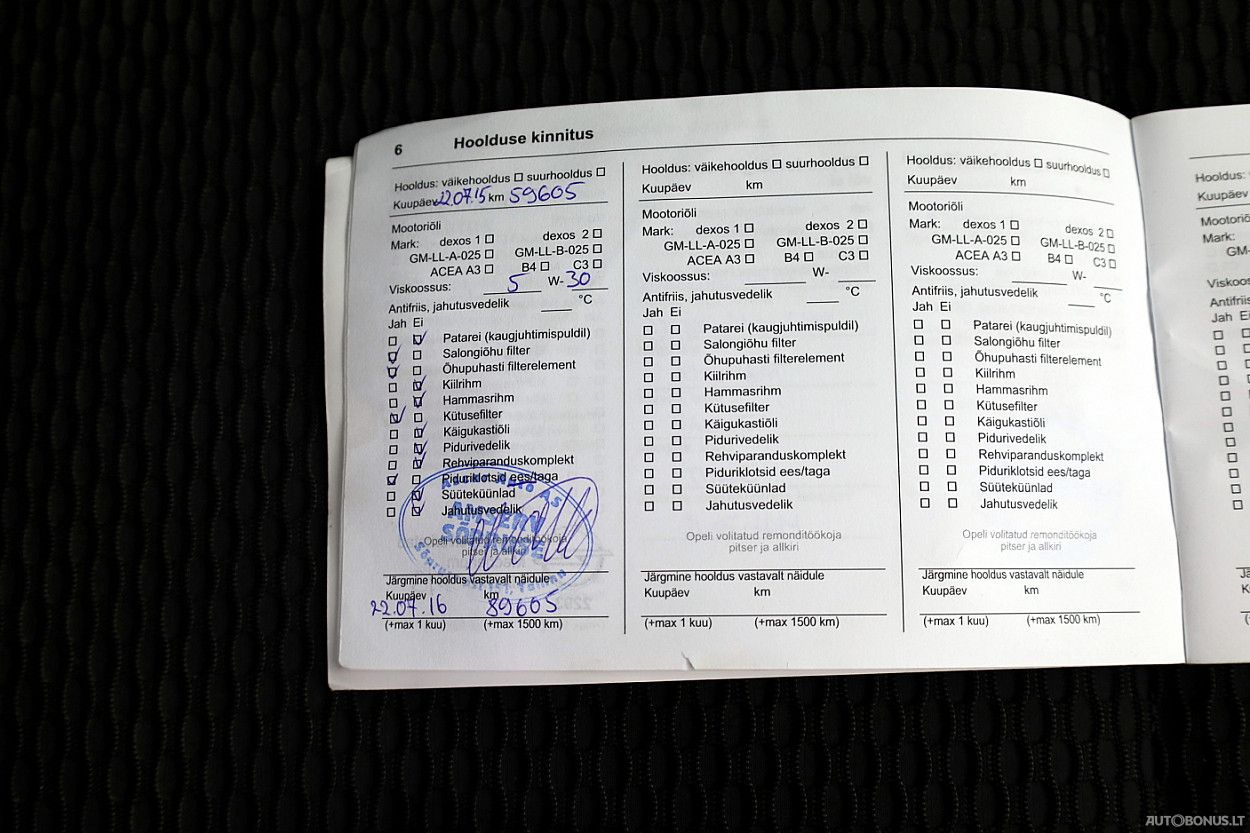 6 Hoolduse kinnitus
Hooldus: väikehooldus suurhooldus
Kuupäev 22.07.15 km 59605
Mootoriõli
Mark: dexos 1 dexos 2
GM-LL-A-025 GM-LL-B-025
ACEA A3 B4 C3
Viskoossus: 5 W-30
Antifriis, jahutusvedelik °C
Jah Ei
Patarei (kaugjuhtimispuldil)
Salongiõhu filter
Õhupuhasti filterelement
Kiilrihm
Hammasrihm
Kütusefilter
Käigukastiõli
Pidurivedelik
Rehviparanduskomplekt
Piduriklotsid ees/taga
Süüteküünlad
Jahutusvedelik
Auto AS
AMSERV
SÕPRUSE
Opeli volitatud remonditöökoja
pitser ja allkiri
Järgmine hooldus vastavalt näidule
Kuupäev km
22.07.16 89605
(+max 1 kuu) (+max 1500 km)
Hooldus: väikehooldus suurhooldus
Kuupäev km
Mootoriõli
Mark: dexos 1 dexos 2
GM-LL-A-025 GM-LL-B-025
ACEA A3 B4 C3
Viskoossus: W-
Antifriis, jahutusvedelik °C
Jah Ei
Patarei (kaugjuhtimispuldil)
Salongiõhu filter
Õhupuhasti filterelement
Kiilrihm
Hammasrihm
Kütusefilter
Käigukastiõli
Pidurivedelik
Rehviparanduskomplekt
Piduriklotsid ees/taga
Süüteküünlad
Jahutusvedelik
Opeli volitatud remonditöökoja
pitser ja allkiri
Järgmine hooldus vastavalt näidule
Kuupäev km
(+max 1 kuu) (+max 1500 km)
Hooldus: väikehooldus suurhooldus
Kuupäev km
Mootoriõli
Mark: dexos 1 dexos 2
GM-LL-A-025 GM-LL-B-025
ACEA A3 B4 C3
Viskoossus: W-
Antifriis, jahutusvedelik °C
Jah Ei
Patarei (kaugjuhtimispuldil)
Salongiõhu filter
Õhupuhasti filterelement
Kiilrihm
Hammasrihm
Kütusefilter
Käigukastiõli
Pidurivedelik
Rehviparanduskomplekt
Piduriklotsid ees/taga
Süüteküünlad
Jahutusvedelik
Opeli volitatud remonditöökoja
pitser ja allkiri
Järgmine hooldus vastavalt näidule
Kuupäev km
(+max 1 kuu) (+max 1500 km)
Hooldus:
Kuupäev
Mark:
Jah
AUTOBONUS.LT